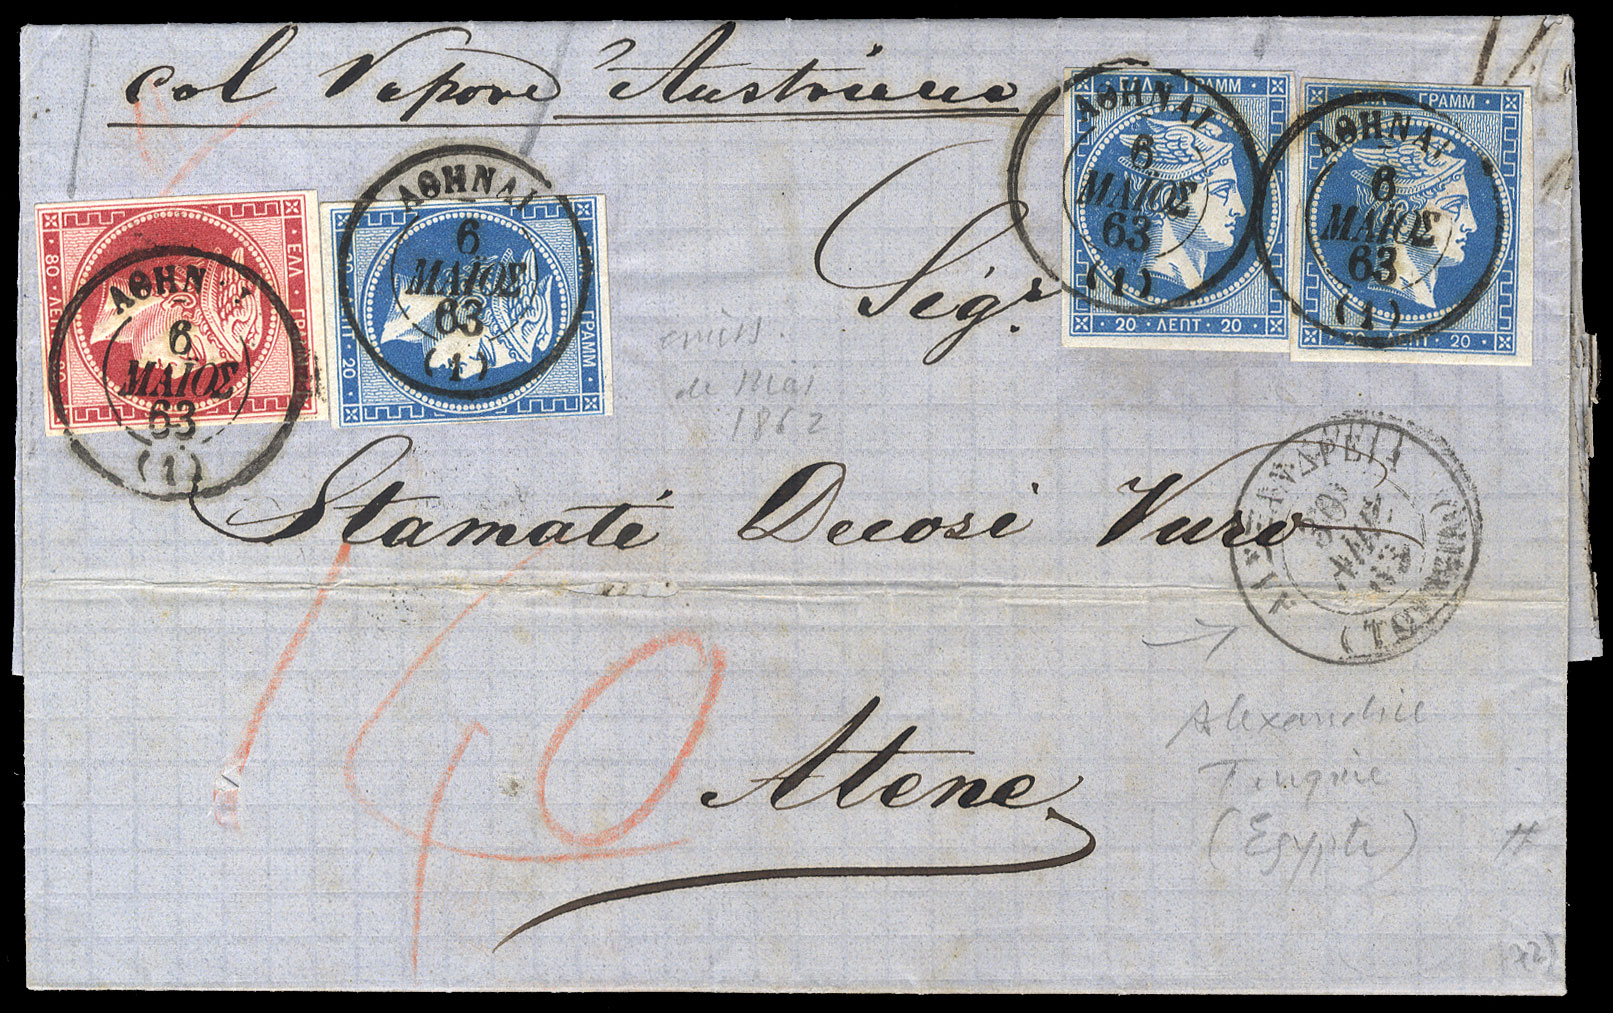 col Vapore Austriaco
ΕΛΛ ΓΡΑΜΜ
ΑΘΗΝΑΙ
6
ΜΑΙΟΣ
63
(1)
20 ΛΕΠΤ 20
ΕΛΛ ΓΡΑΜΜ
ΑΘΗΝΑΙ
6
ΜΑΙΟΣ
63
(1)
ΛΕΠΤ 20
80 ΛΕΠ 80
ΕΛΛ ΓΡ
ΑΘΗΝ
6
ΜΑΙΟΣ
63
(1)
20 ΛΕΠΤ 20
ΓΡΑΜΜ
ΑΘΗΝΑΙ
6
ΜΑΙΟΣ
63
(1)
Sigr
emiss.
de Mai
1862
Stamaté Decosi Vuro
ΑΛΕΞΑΝΔΡΕΙΑ
(ΤΟΥΡΚΙΑ)
140
Atene
Alexandrie
Turquie
(Egypte)